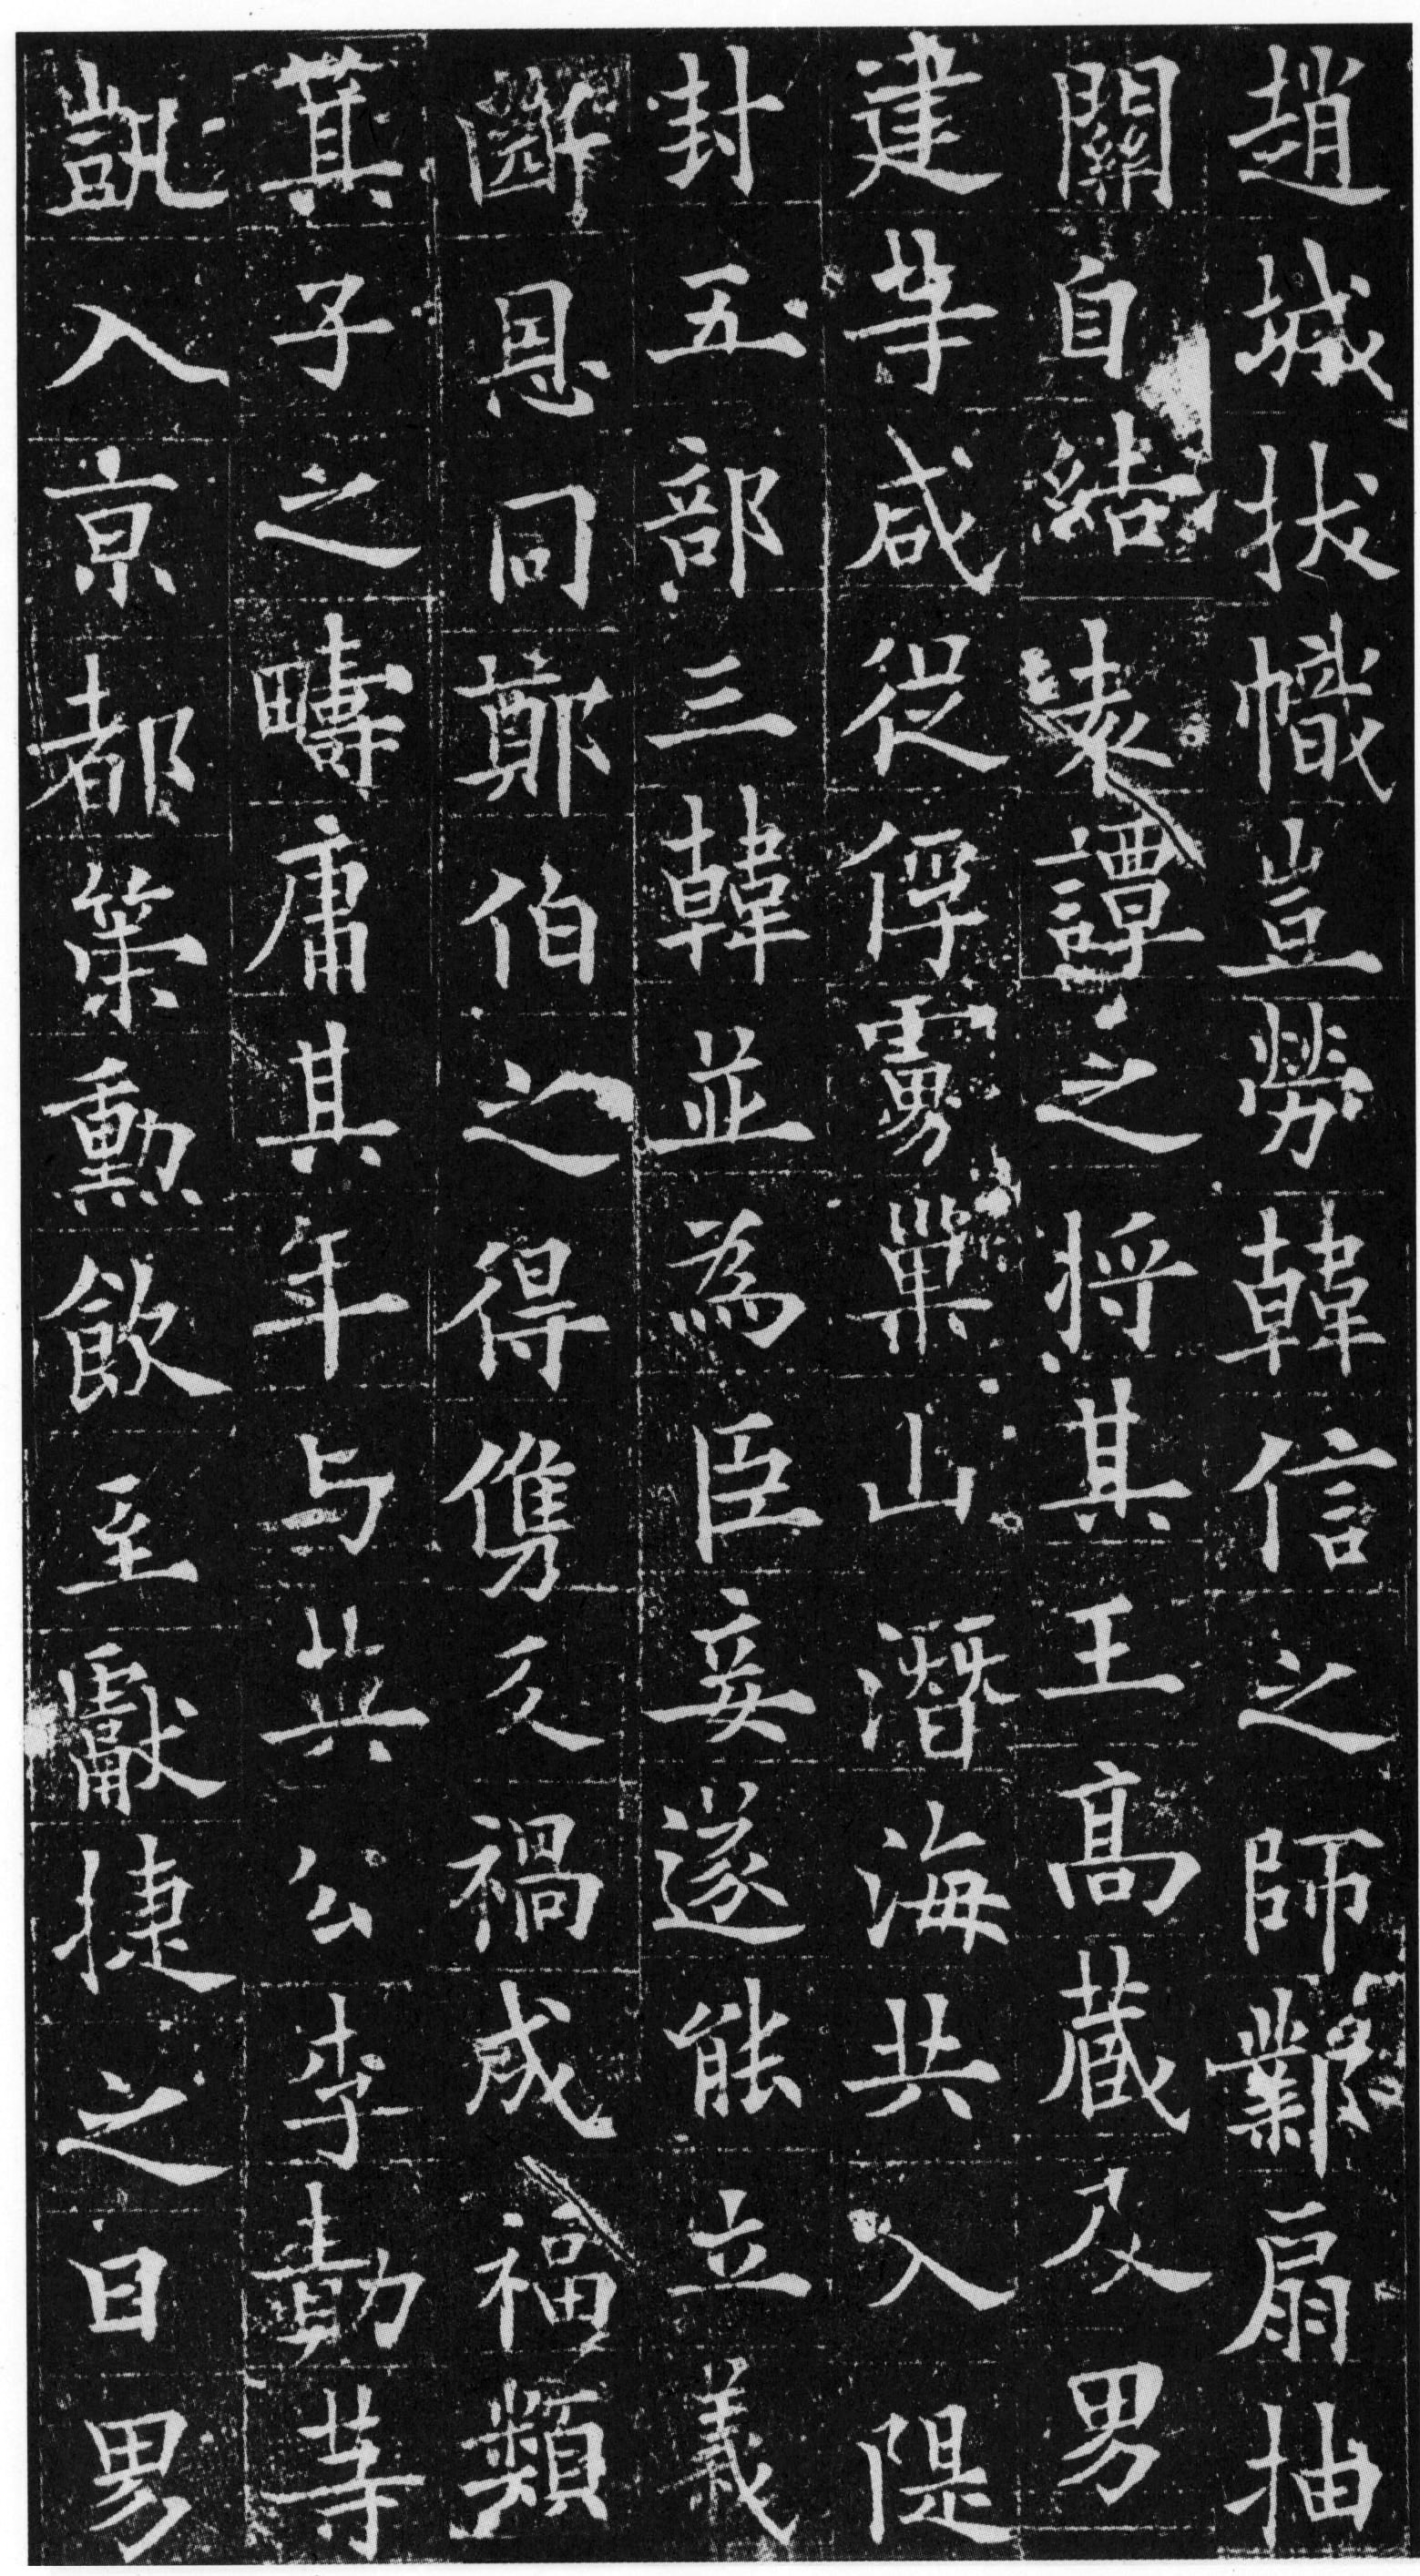 趙城拔幟豈勞韓信之師鄴扇抽
關自結袁譚之將其王高藏及男
建等咸從俘虜巢山潛海共入隄
封五部三韓並為臣妾遂能立義
斷恩同鄭伯之得儁反禍成福類
箕子之疇庸其年与共公李勣等
凱入京都策勳飲至獻捷之日男